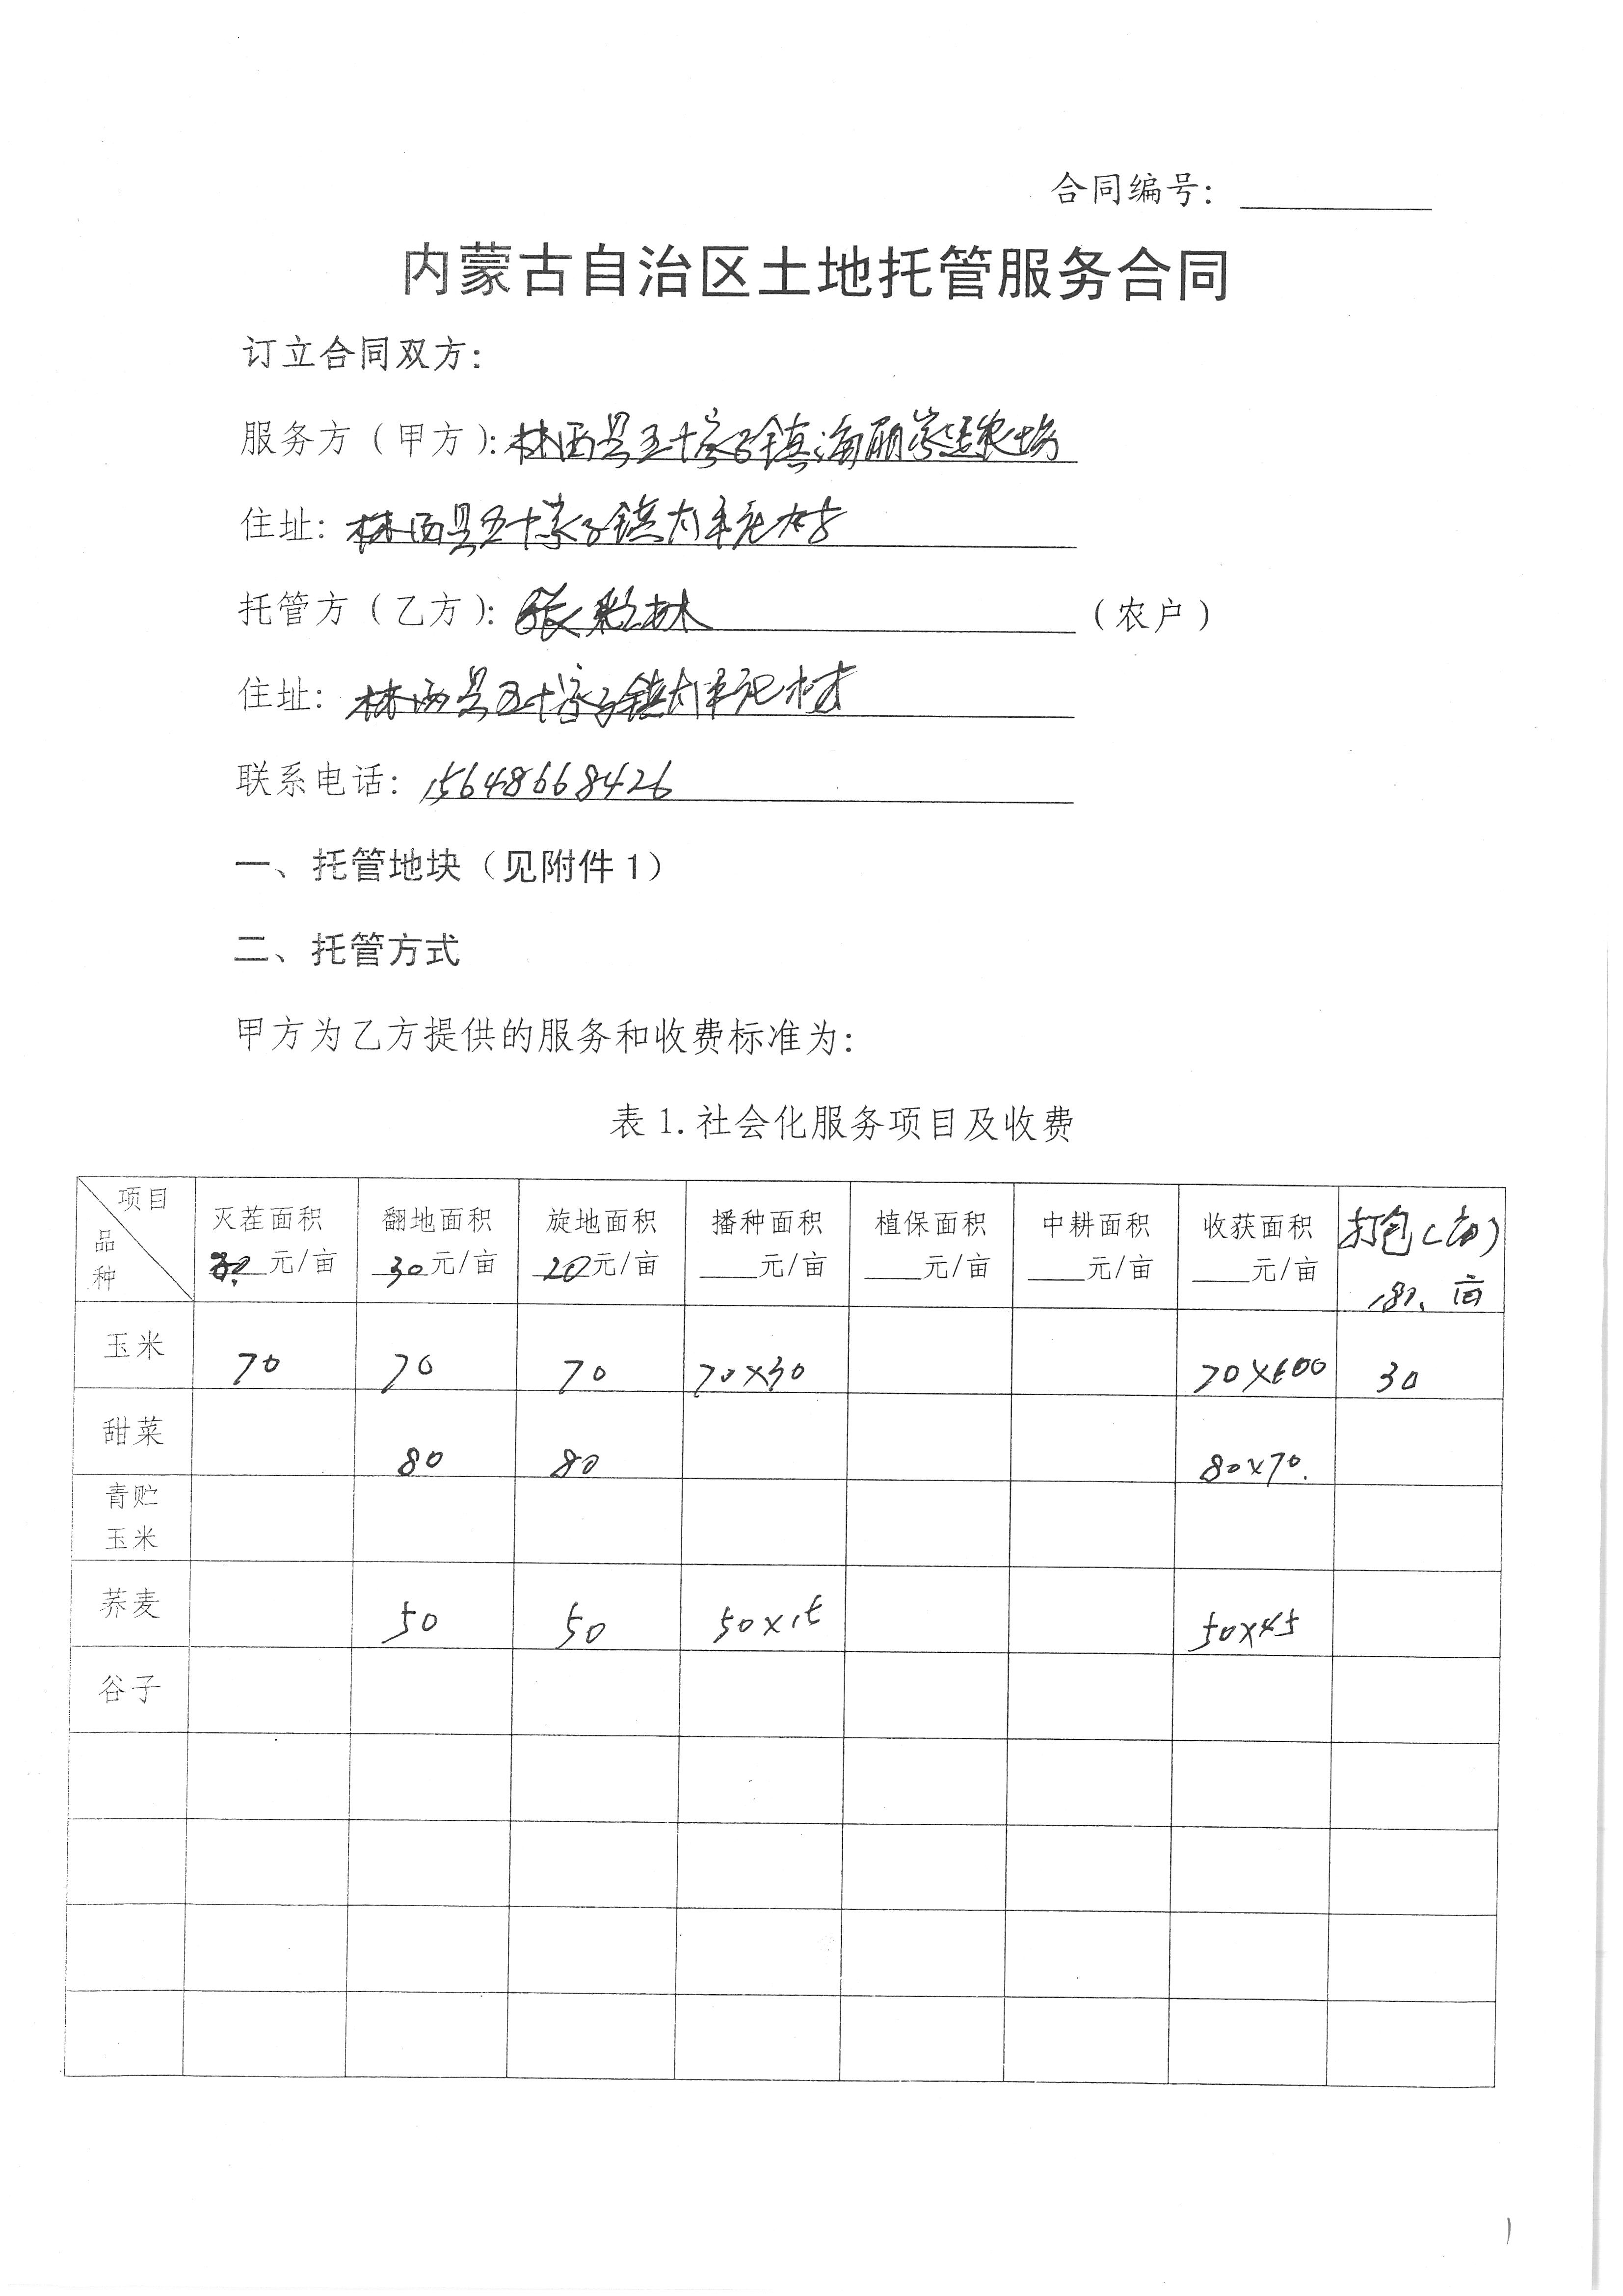 合同编号：
内蒙古自治区土地托管服务合同
订立合同双方：
服务方（甲方）：林西县五十家子镇海丽家庭农场
住址：林西县五十家子镇太平记村
托管方（乙方）：张 林 （农户）
住址：林西县五十家子镇太平记村
联系电话：15648668426
一、托管地块（见附件1）
二、托管方式
甲方为乙方提供的服务和收费标准为：
表1.社会化服务项目及收费
项目 品种 灭茬面积 元/亩 翻地面积 30元/亩 旋地面积 20元/亩 播种面积 元/亩 植保面积 元/亩 中耕面积 元/亩 收获面积 元/亩 打包 亩
玉米 70 70 70 70×30 70×600 30
甜菜 80 80 80×70.
青贮玉米
荞麦 50 50 50×15 50×45
谷子
1